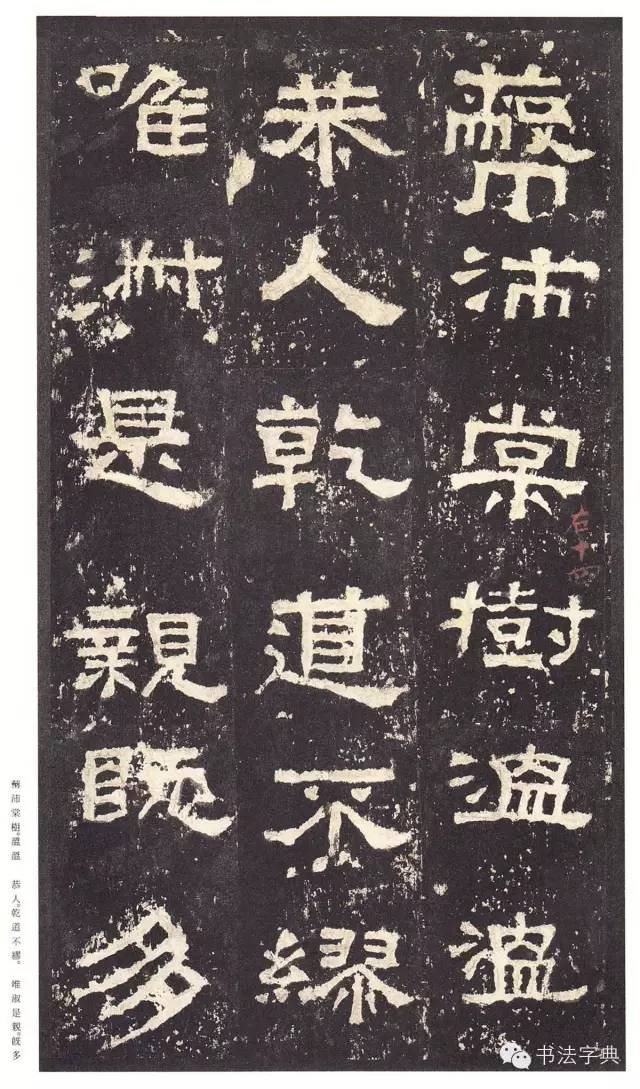 蔽沛棠樹溫溫
恭人乾道不繆
唯淑是親既多
右十四
蔽沛棠樹。溫溫 恭人。乾道不繆。 唯淑是親。既多
书法字典